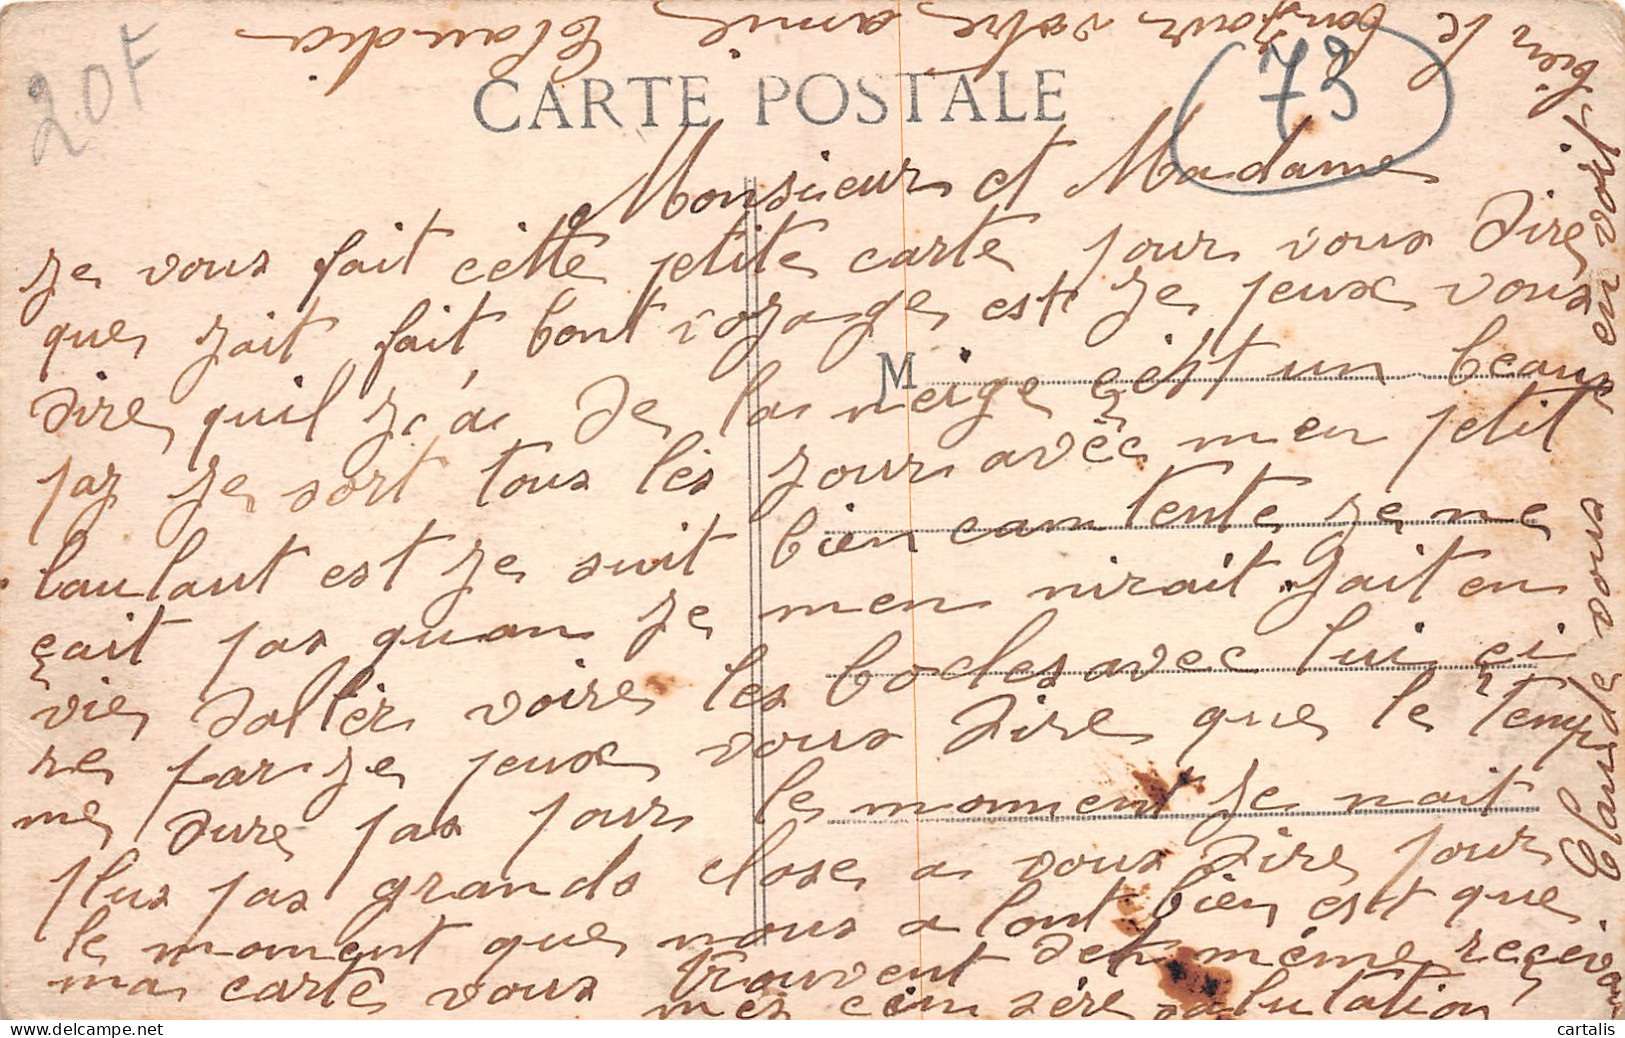 20F
73
CARTE POSTALE
Monsieur et Madame
Je vous fait cètte petite carte pour vous dire
que jait fait bont voyage est je peux vous
dire quil y'a de la neige c'èst un beaux
pay je sort tous lès jour avèc men petit
est je suit bien cantente je ne
çait pas quan je men nirait jait en
vie daller voire les boches avec lui çi
re far je peux vous dire que le temp
me dure pas pour le moment je nait
plus pas grands chose a vous dire pour
le moment que nous a lont bien est que
ma carte vous trouvent de même recevan
mes cinsère salutation
Claude vous envoit
bien le bonjour votre amie Claudia
M
cartalis